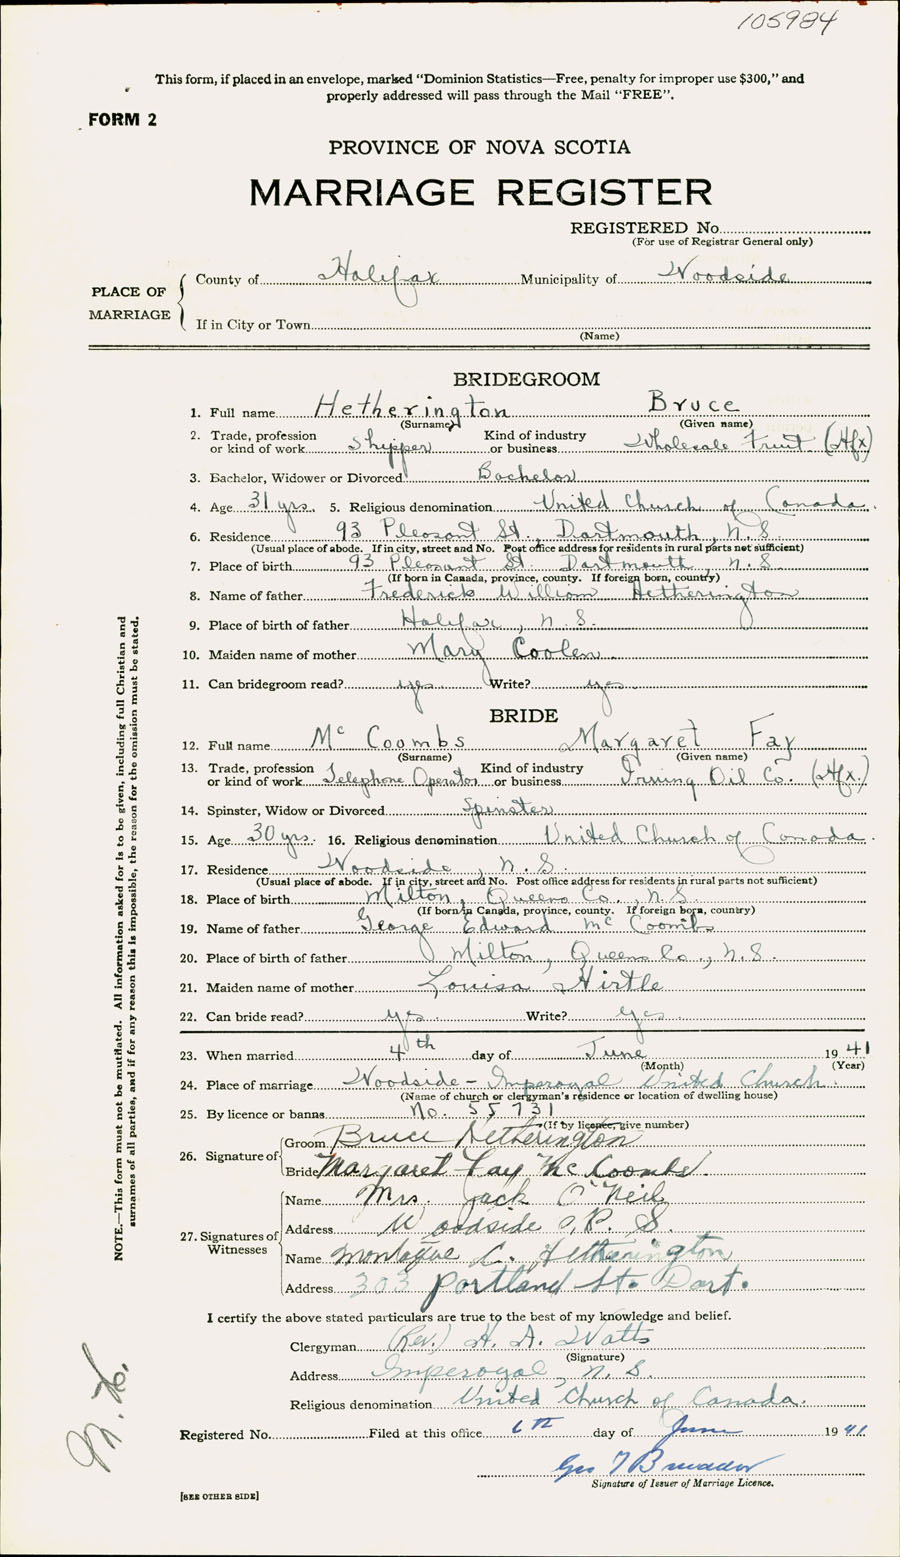 105984
This form, if placed in an envelope, marked "Dominion Statistics—Free, penalty for improper use $300," and
properly addressed will pass through the Mail "FREE".
FORM 2
PROVINCE OF NOVA SCOTIA
MARRIAGE REGISTER
REGISTERED No.
(For use of Registrar General only)
PLACE OF MARRIAGE
County of Halifax Municipality of Woodside
If in City or Town
(Name)
BRIDEGROOM
1. Full name Hetherington Bruce
(Surname) (Given name)
2. Trade, profession or kind of work Shipper Kind of industry or business Wholesale Fruit (Hfx)
3. Bachelor, Widower or Divorced Bachelor
4. Age 31 yrs. 5. Religious denomination United Church of Canada.
6. Residence 93 Pleasant St., Dartmouth, N.S.
(Usual place of abode. If in city, street and No. Post office address for residents in rural parts not sufficient)
7. Place of birth 93 Pleasant St. Dartmouth, N.S.
(If born in Canada, province, county. If foreign born, country)
8. Name of father Frederick William Hetherington
9. Place of birth of father Halifax, N.S.
10. Maiden name of mother Mary Coolen
11. Can bridegroom read? yes Write? yes
BRIDE
12. Full name Mc Coombs Margaret Fay
(Surname) (Given name)
13. Trade, profession or kind of work Telephone Operator Kind of industry or business Irving Oil Co. (Hfx.)
14. Spinster, Widow or Divorced Spinster
15. Age 30 yrs. 16. Religious denomination United Church of Canada.
17. Residence Woodside, N.S.
(Usual place of abode. If in city, street and No. Post office address for residents in rural parts not sufficient)
18. Place of birth Milton, Queens Co., N.S.
(If born in Canada, province, county. If foreign born, country)
19. Name of father George Edward Mc Coombs
20. Place of birth of father Milton, Queens Co., N.S.
21. Maiden name of mother Louisa Hirtle
22. Can bride read? yes Write? yes
23. When married 4th day of June 1941
(Month) (Year)
24. Place of marriage Woodside - Imperoyal United Church.
(Name of church or clergyman's residence or location of dwelling house)
25. By licence or banns No. 55731
(If by licence, give number)
26. Signature of
Groom Bruce Hetherington
Bride Margaret Fay Mc Coombs.
27. Signatures of Witnesses
Name Mrs. Jack O'Neil
Address Woodside P. S.
Name Montague C. Hetherington
Address 303 Portland St. Dart.
I certify the above stated particulars are true to the best of my knowledge and belief.
Clergyman (Rev.) H. A. Watts
(Signature)
Address Imperoyal, N.S.
Religious denomination United Church of Canada.
Registered No. Filed at this office 6th day of June 1941
Signature of Issuer of Marriage Licence.
[SEE OTHER SIDE]
NOTE.—This form must not be mutilated. All information asked for is to be given, including full Christian and
surnames of all parties, and if for any reason this is impossible, the reason for the omission must be stated.